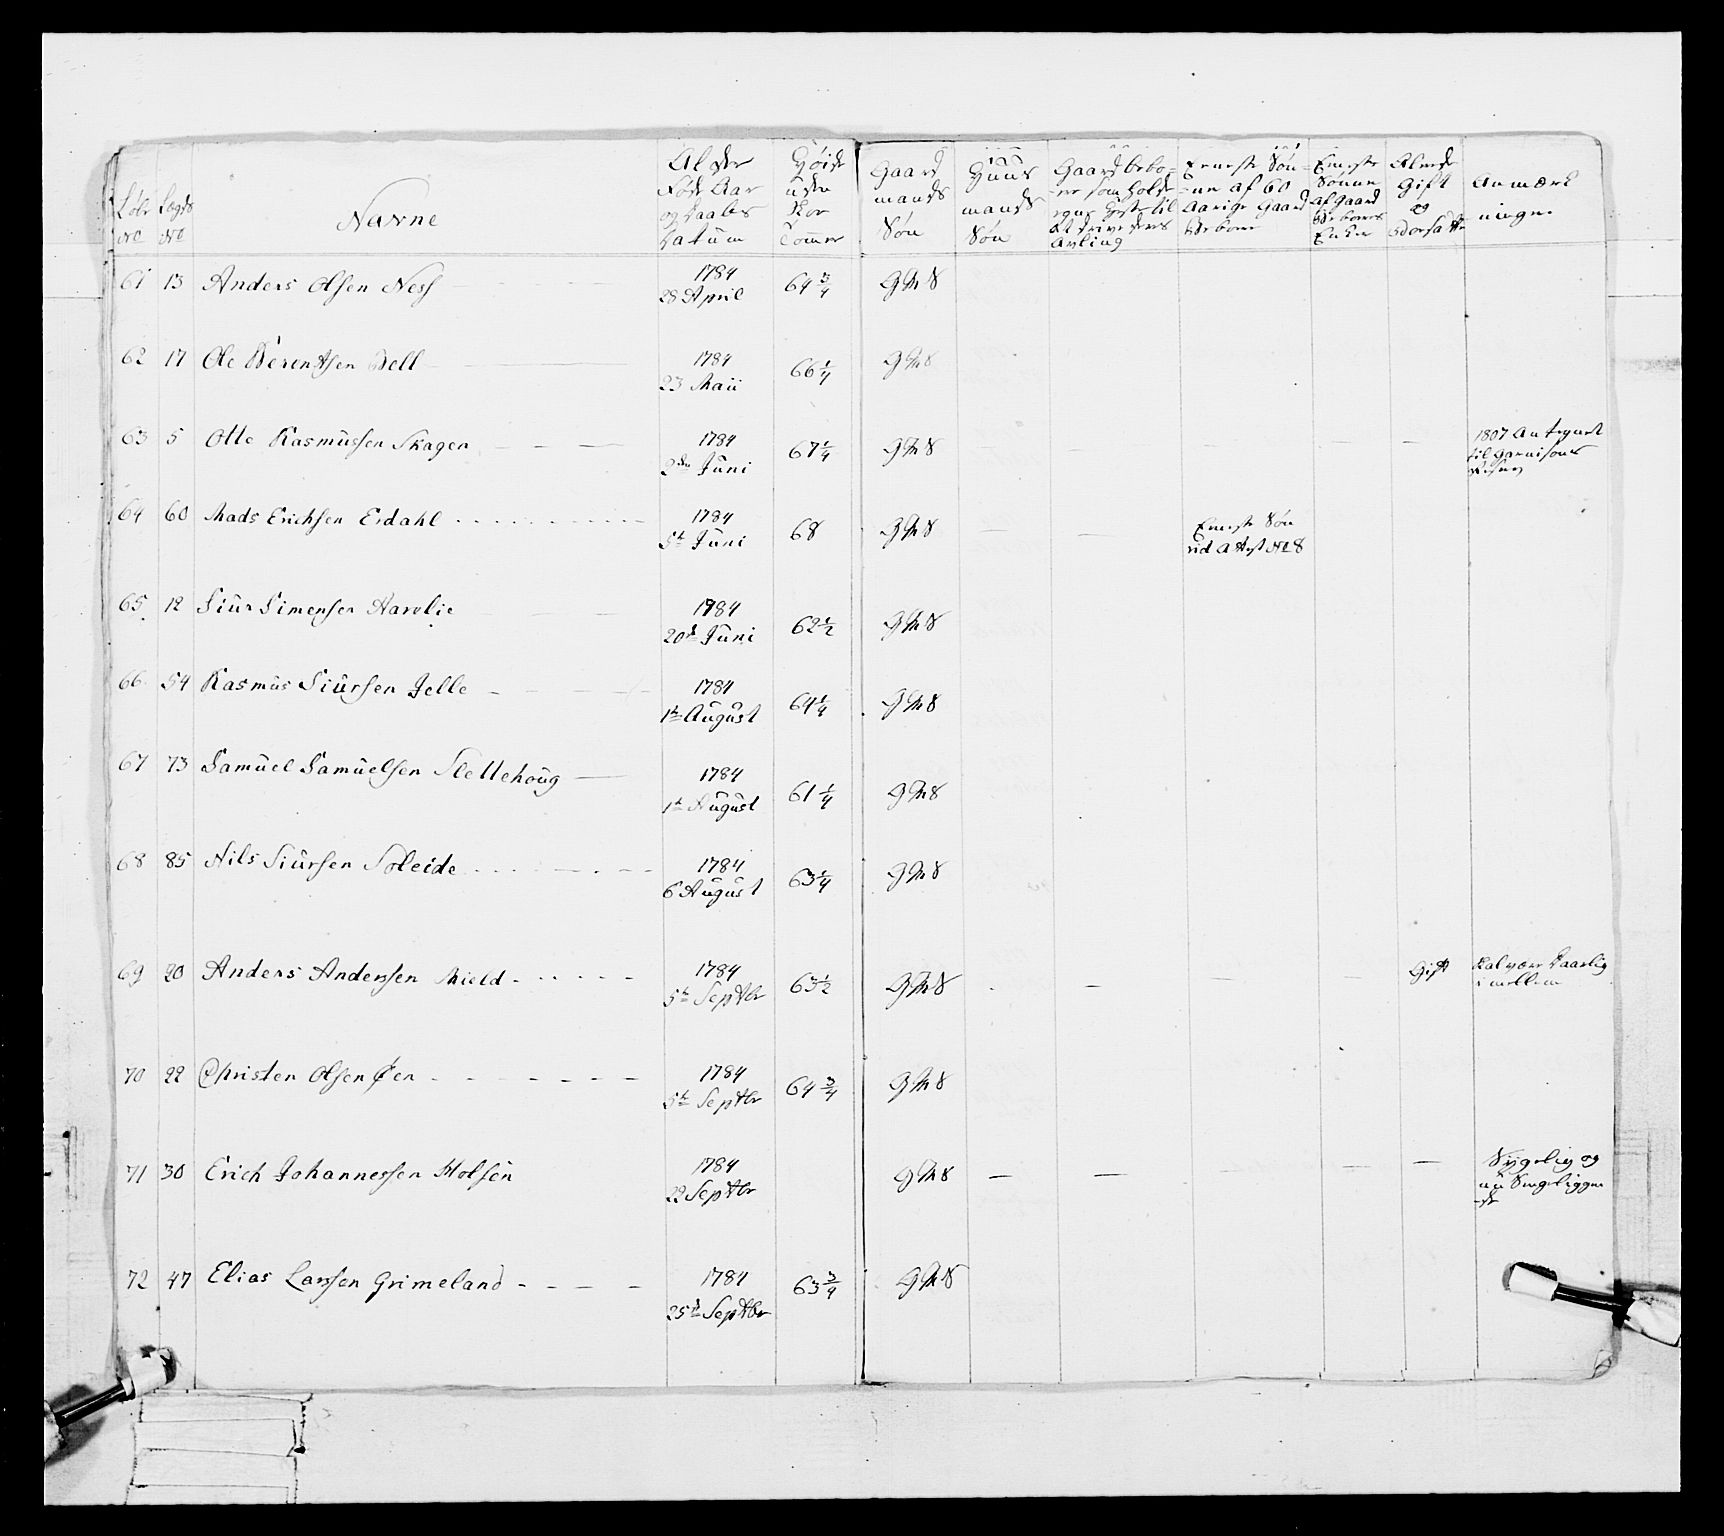 Løbe No | Lægds No | Navne | Alder Føds Aar og Daabs Datum | Høide uden Skoe Tommer | Gaard mands Søn | Huus mands Søn | Gaardbebo- | Eeneste Søn- af 60 Aarige Gaard Beboere | Eeneste Sønner af Gaard Beboeres Enker | Gift og | Anmærk ninger
61 13 Anders Olsen Ness 1784 28 April 64 3/4 GMS
62 17 Ole Berentsen Bell 1784 23 Maii 66 1/4 GMS
63 5 Otte Rasmussen Skagen 1784 2den Juni 67 1/4 GMS 1807 Antegnet til Garnisons
64 60 Mads Erichsen Eidahl 1784 5te Juni 68 GMS Eeneste Søn vid Attest No 8
65 12 Siur Simensen Havelie 1784 20de Juni 62 1/2 GMS
66 54 Rasmus Siursen Jelle 1784 1te August 64 1/4 GMS
67 73 Samuel Samuelsen Slettehoug 1784 1te August 61 1/4 GMS
68 85 Nils Siursen Soleide 1784 6 August 63 1/4 GMS
69 20 Anders Andersen Mield 1784 5te Septbr 63 1/2 GMS Gift
70 22 Christen Olsen Øen 1784 5te Septbr 64 3/4 GMS
71 30 Erich Johannessen Holsen 1784 22 Septbr GMS Sygelig og nu Sengeliggen -de
72 47 Elias Larsen Grimeland 1784 25de Septbr 63 3/4 GMS